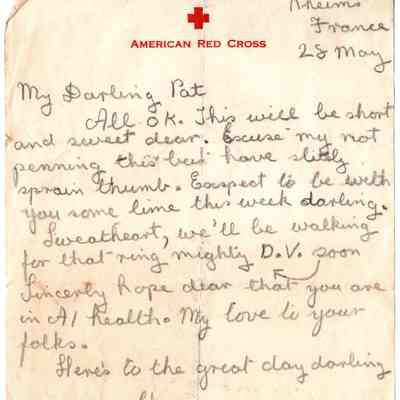 Rheims
France
28 May
AMERICAN RED CROSS
My Darling Pat
All OK. This will be short
and sweet dear. Excuse my not
penning this but have slitly
sprain thumb. Exspect to be with
you some time this week darling.
Sweatheart, we'll be walking
for that ring mighty D.V. soon
Sincerly hope dear that you are
in A1 health. My love to your
folks.
Here's to the great day darling